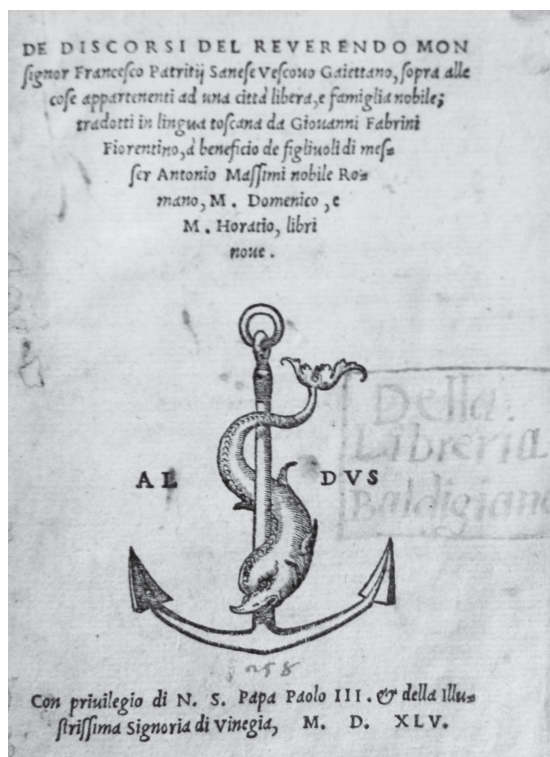 DE DISCORSI DEL REVERENDO MON
signor Francesco Patritij Sanese Vescouo Gaiettano, sopra alle
cose appartenenti ad una cittá libera, e famiglia nobile;
tradotti in lingua toscana da Giouanni Fabrini
Fiorentino, á beneficio de figliuoli di mes=
ser Antonio Massimi nobile Ro=
mano, M. Domenico, e
M. Horatio, libri
noue.
Della
Libreria
AL DVS
Baldigiano
258
Con priuilegio di N. S. Papa Paolo III. & della Illu=
strissima Signoria di Vinegia, M. D. XLV.